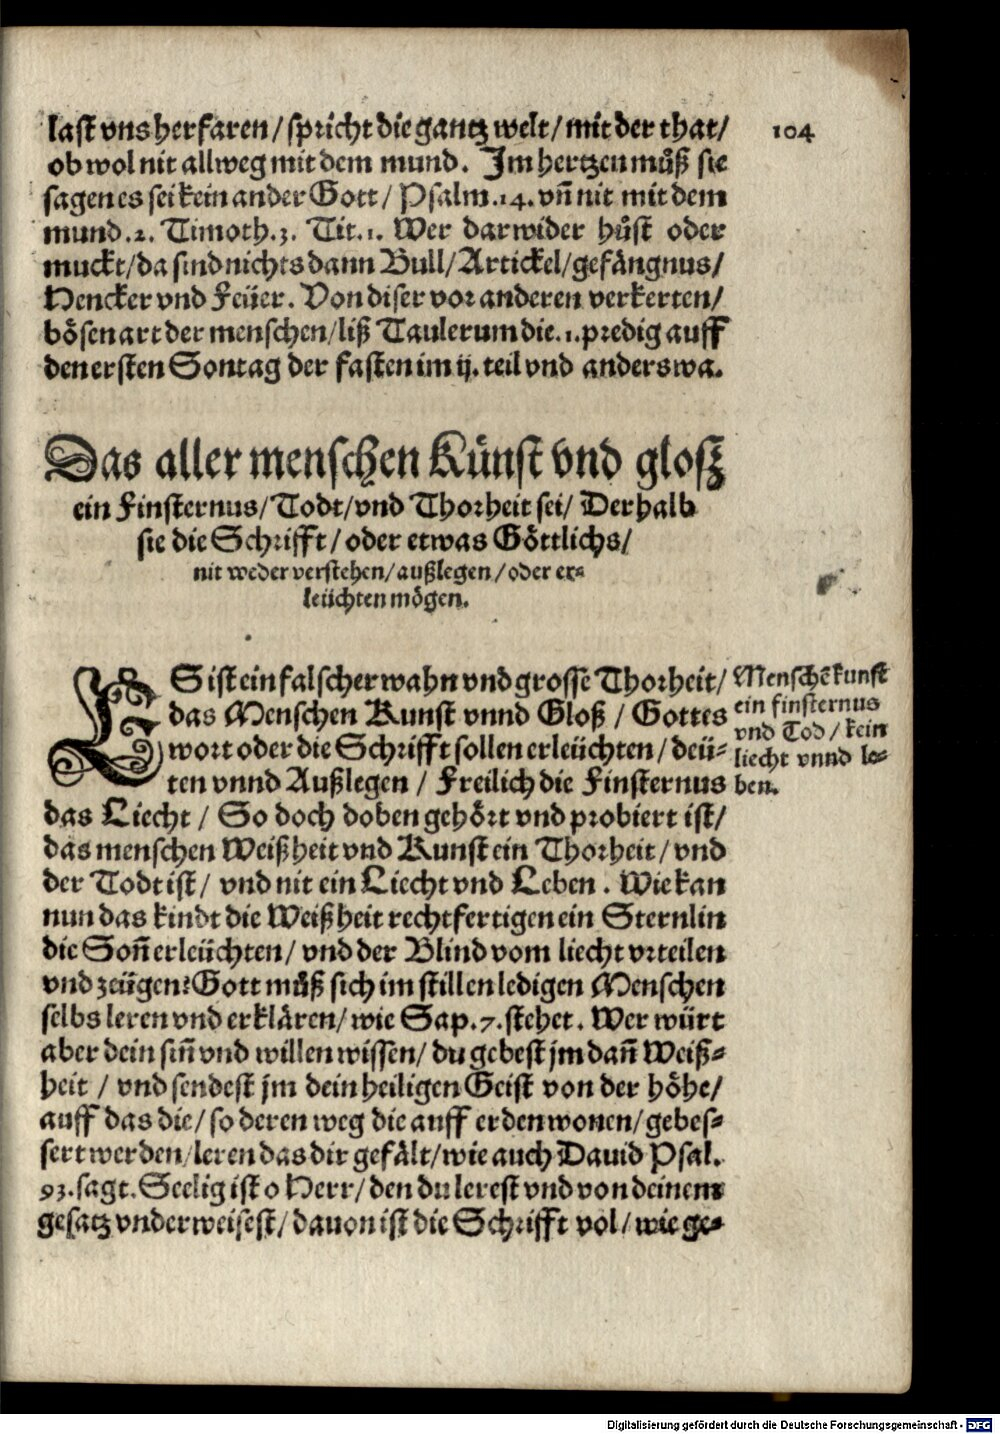 last vns herfaren / spricht die gantz welt / mit der that /
104
ob wol nit allweg mit dem mund. Im hertzen můß sie
sagen es sei kein ander Gott / Psalm.14. vn̄ nit mit dem
mund.2. Timoth.3. Tit.1. Wer darwider hůst oder
muckt / da sind nichts dann Bull / Artickel / gefängnus /
Hencker vnd Feüer. Von diser vor anderen verkerten /
bösen art der menschen / liß Taulerum die.1.predig auff
den ersten Sontag der fasten im ij. teil vnd anderswa.
Das aller menschen Künst vnd glosz
ein Finsternus / Todt / vnd Thorheit sei / Derhalb
sie die Schrifft / oder etwas Göttlichs /
nit weder verstehen / außlegen / oder er-
leüchten mögen.
ES ist ein falscher wahn vnd grosse Thorheit /
das Menschen Kunst vnnd Gloß / Gottes
wort oder die Schrifft sollen erleüchten / deü-
ten vnnd Außlegen / Freilich die Finsternus
das Liecht / So doch doben gehört vnd probiert ist /
das menschen Weißheit vnd Kunst ein Thorheit / vnd
der Todt ist / vnd nit ein Liecht vnd Leben. Wie kan
nun das kindt die Weißheit rechtfertigen ein Sternlin
die Son̄ erleüchten / vnd der Blind vom liecht vrteilen
vnd zeügen? Gott můß sich im stillen ledigen Menschen
selbs leren vnd erklären / wie Sap.7.stehet. Wer würt
aber dein sin̄ vnd willen wissen / du gebest jm dan̄ Weiß-
heit / vnd sendest jm dein heiligen Geist von der höhe /
auff das die / so deren weg die auff erden wonen / gebes-
sert werden / leren das dir gefält / wie auch Dauid Psal.
93.sagt. Seelig ist o Herr / den du lerest vnd von deinem
gesatz vnderweisest / dauon ist die Schrifft vol / wie ge-
Menschē kunst
ein finsternus
vnd Tod / kein
liecht vnnd le-
ben.
Digitalisierung gefördert durch die Deutsche Forschungsgemeinschaft - DFG